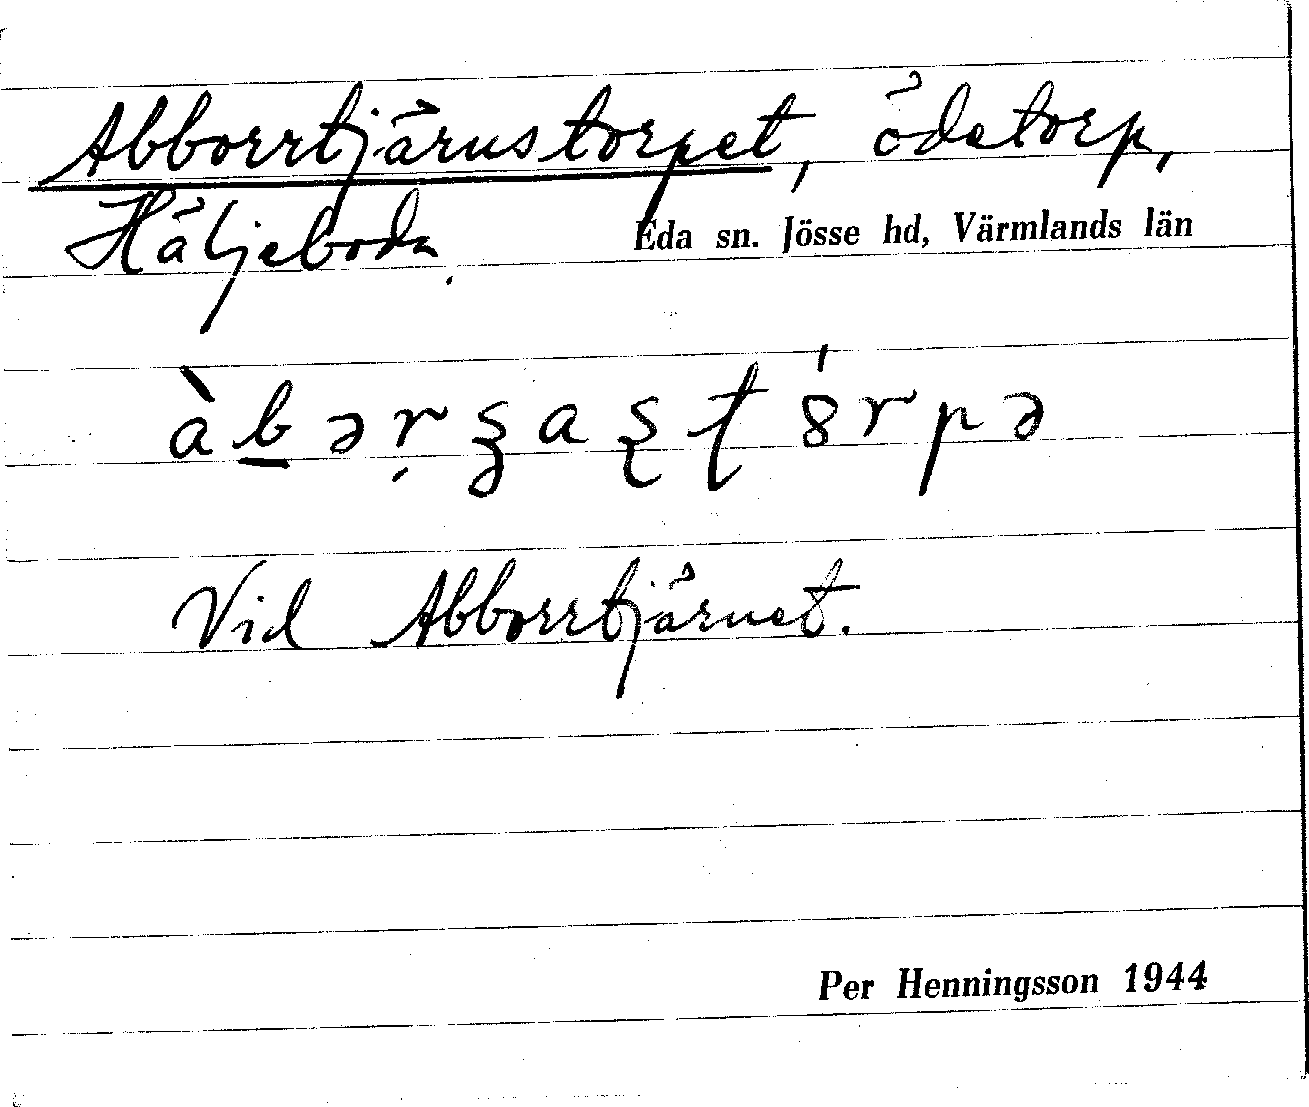 Abborrtjärnstorpet, ödetorp,
Häljeboda.
Eda sn. Jösse hd, Värmlands län
Vid Abborrtjärnet.
Per Henningsson 1944